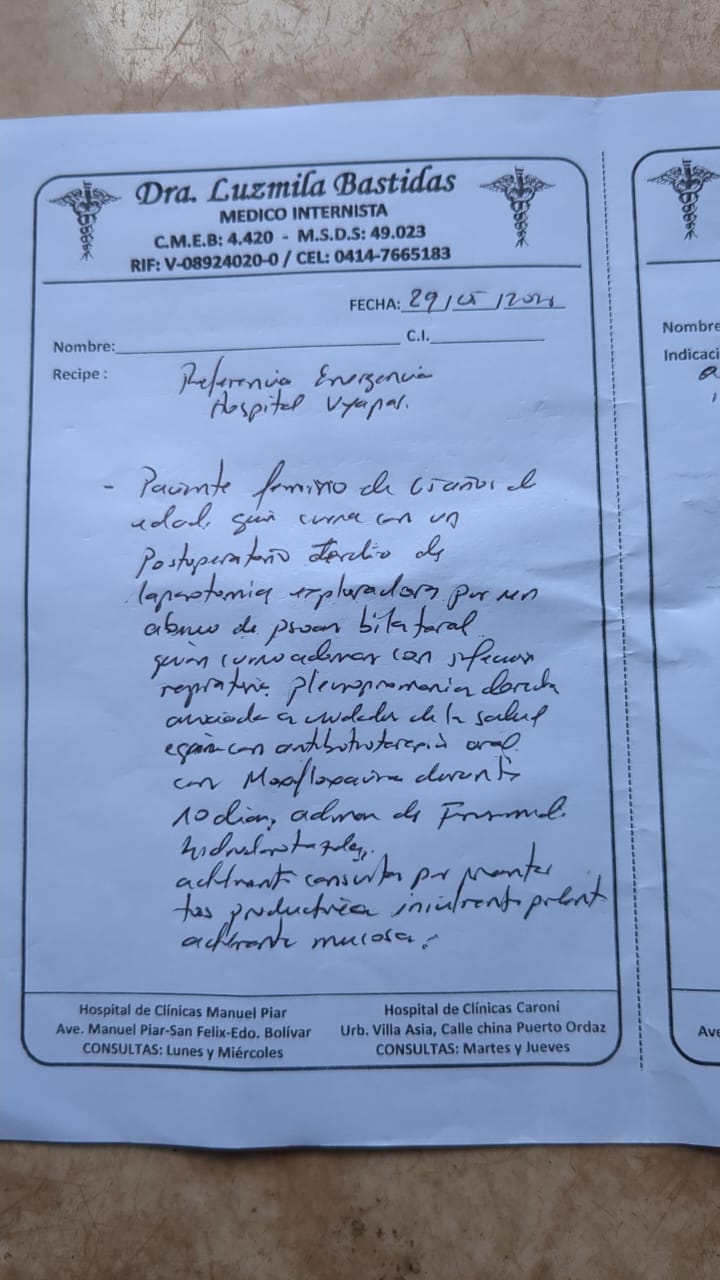 Dra. Luzmila Bastidas
MEDICO INTERNISTA
C.M.E.B: 4.420 - M.S.D.S: 49.023
RIF: V-08924020-0 / CEL: 0414-7665183
FECHA: 29/05/
Nombre: C.I.
Recipe: Referencia Emergencia
Hospital Uyapar.
- Paciente femenino de años de
edad, quien cursa con un
Postoperatorio tardio de
laparotomia exploradora por un
absceso de psoas bilateral
quien curso ademas con infeccion
respiratoria pleuroneumonia derecha
asociada a cuidados de la salud
con antibioticoterapia oral
con Moxifloxacina durante
10 dias, de
consulta por
tos productiva
mucosa.
Hospital de Clínicas Manuel Piar
Ave. Manuel Piar-San Felix-Edo. Bolívar
CONSULTAS: Lunes y Miércoles
Hospital de Clínicas Caroní
Urb. Villa Asia, Calle china Puerto Ordaz
CONSULTAS: Martes y Jueves
Nombre
Indicaci
Ave